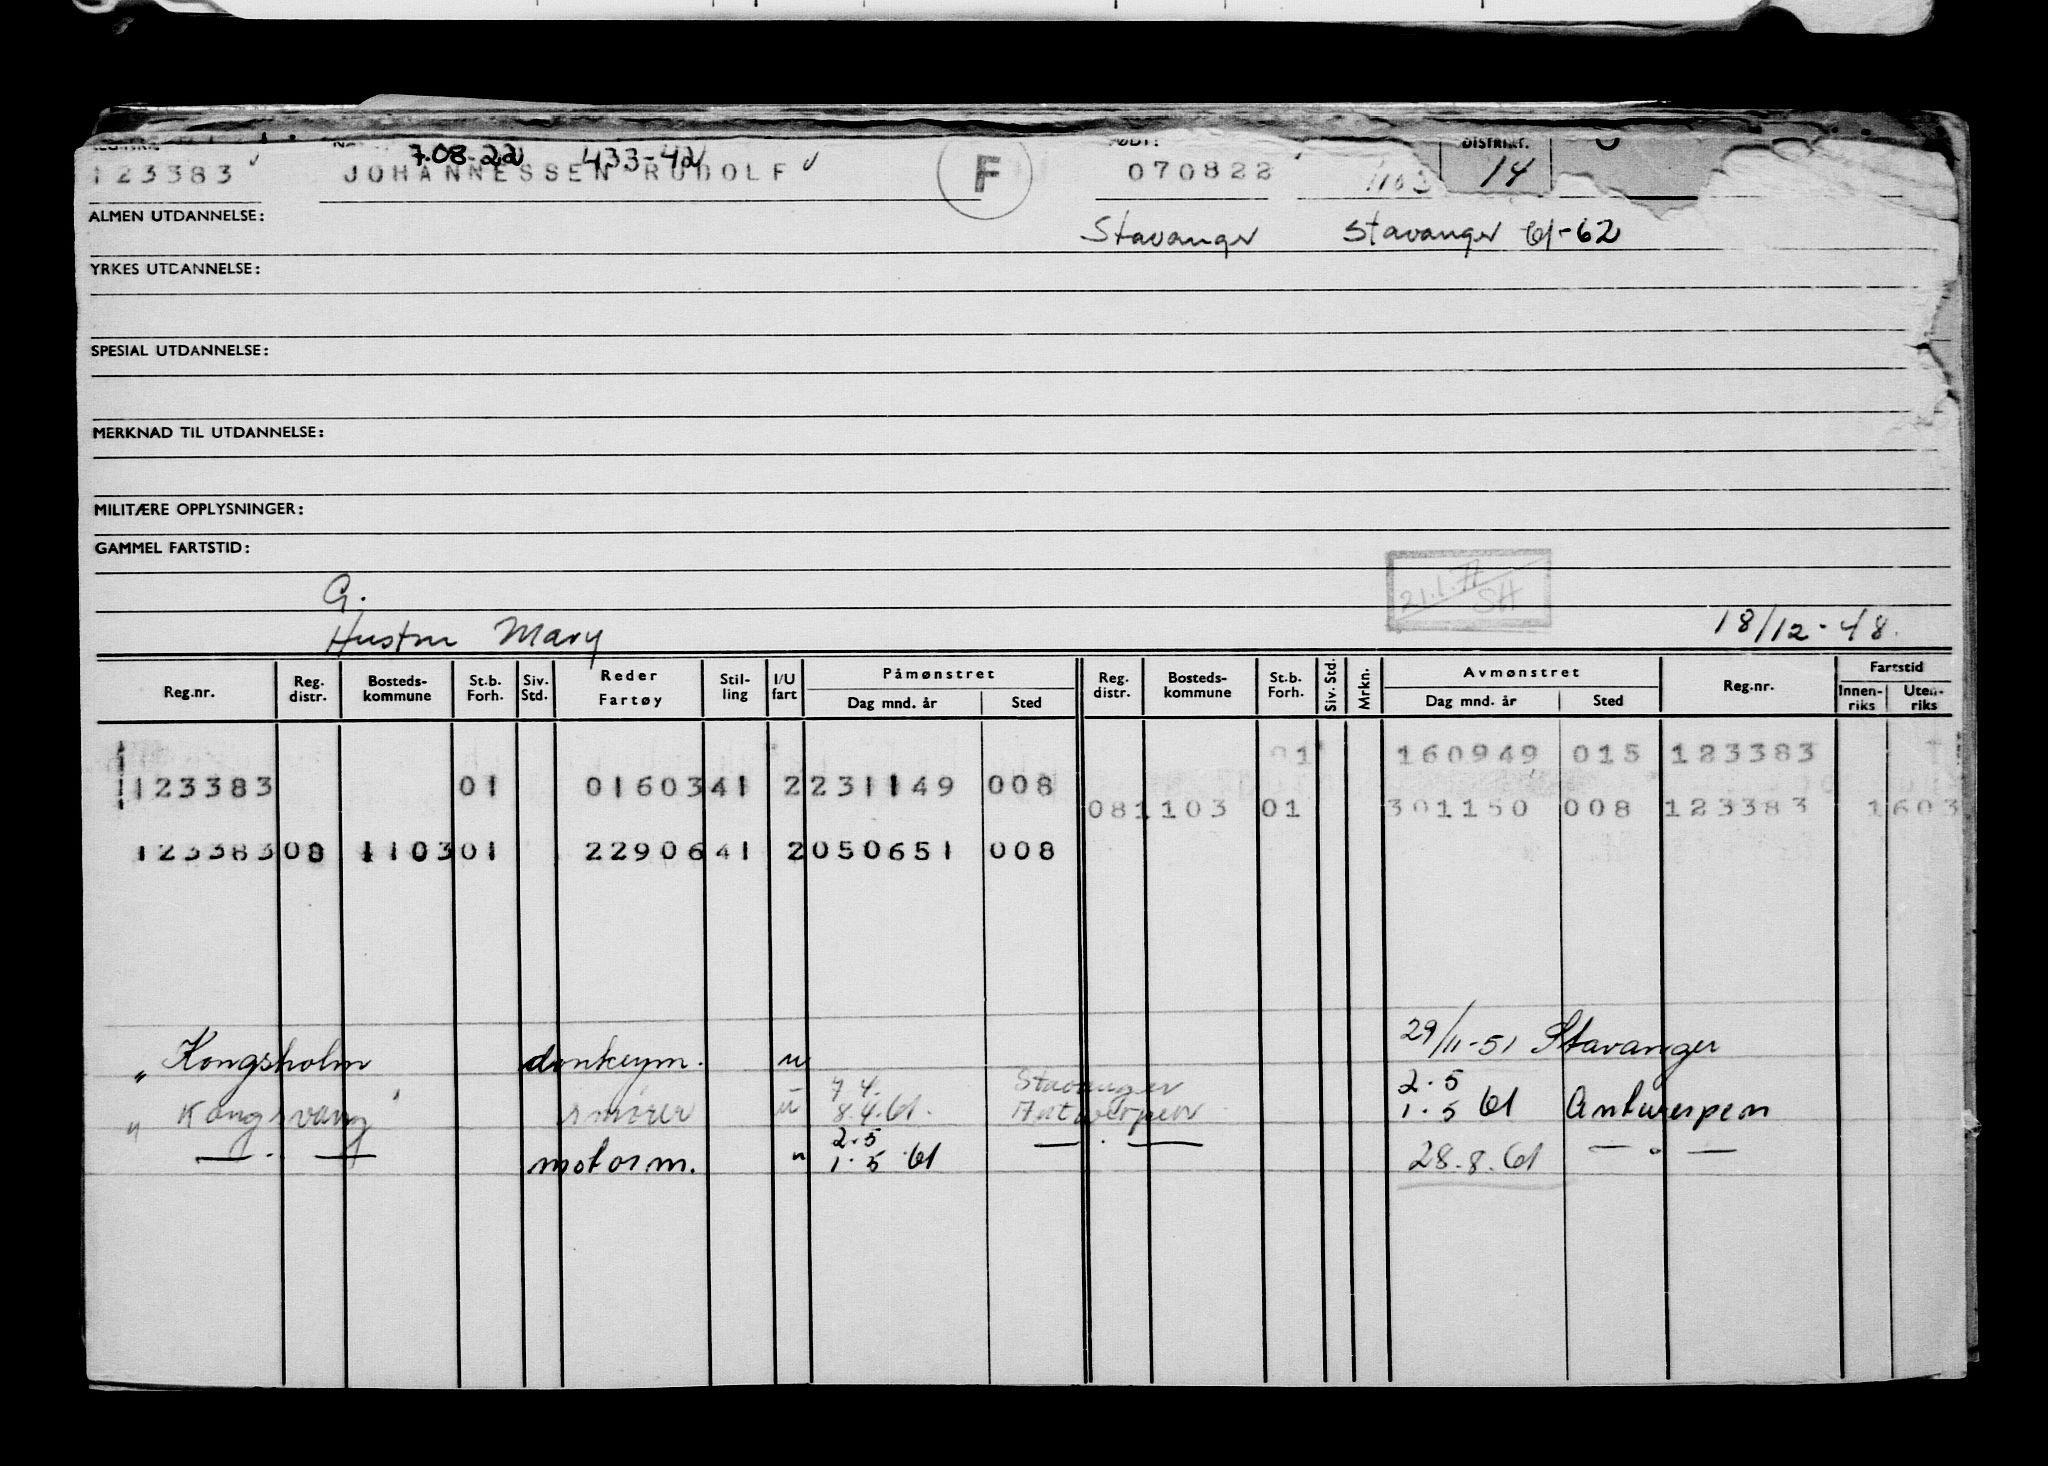 7.08.22 433-42
123383 JOHANNESSEN RUDOLF F 070822 1103 DISTRIKT. 14
ALMEN UTDANNELSE: Stavanger Stavanger 61-62
YRKES UTDANNELSE:
SPESIAL UTDANNELSE:
MERKNAD TIL UTDANNELSE:
MILITÆRE OPPLYSNINGER:
GAMMEL FARTSTID:
G. 21.1.71 SH
Hustru Mary 18/12-48.
Reg.nr. Reg. distr. Bosteds-kommune St.b. Forh. Siv. Std. Reder Fartøy Stil-ling I/U fart Påmønstret Dag mnd. år Sted Reg. distr. Bosteds-kommune St.b. Forh. Siv. Std. Mrkn. Avmønstret Dag mnd. år Sted Reg.nr. Fartstid Innen-riks Uten-riks
01 160949 015 123383
123383 01 0160341 2231149 008
081103 01 301150 008 123383 1603
123383 08 1103 01 2290641 2050651 008
" Kongsholm donkeym. u 29/11-51 Stavanger
7.4. Stavanger 2.5
" Kongsvang smører u 8.4.61. Antwerpen 1.5 61 Antwerpen
2.5
— " — motorm. " 1.5.61 — " — 28.8.61 — " —